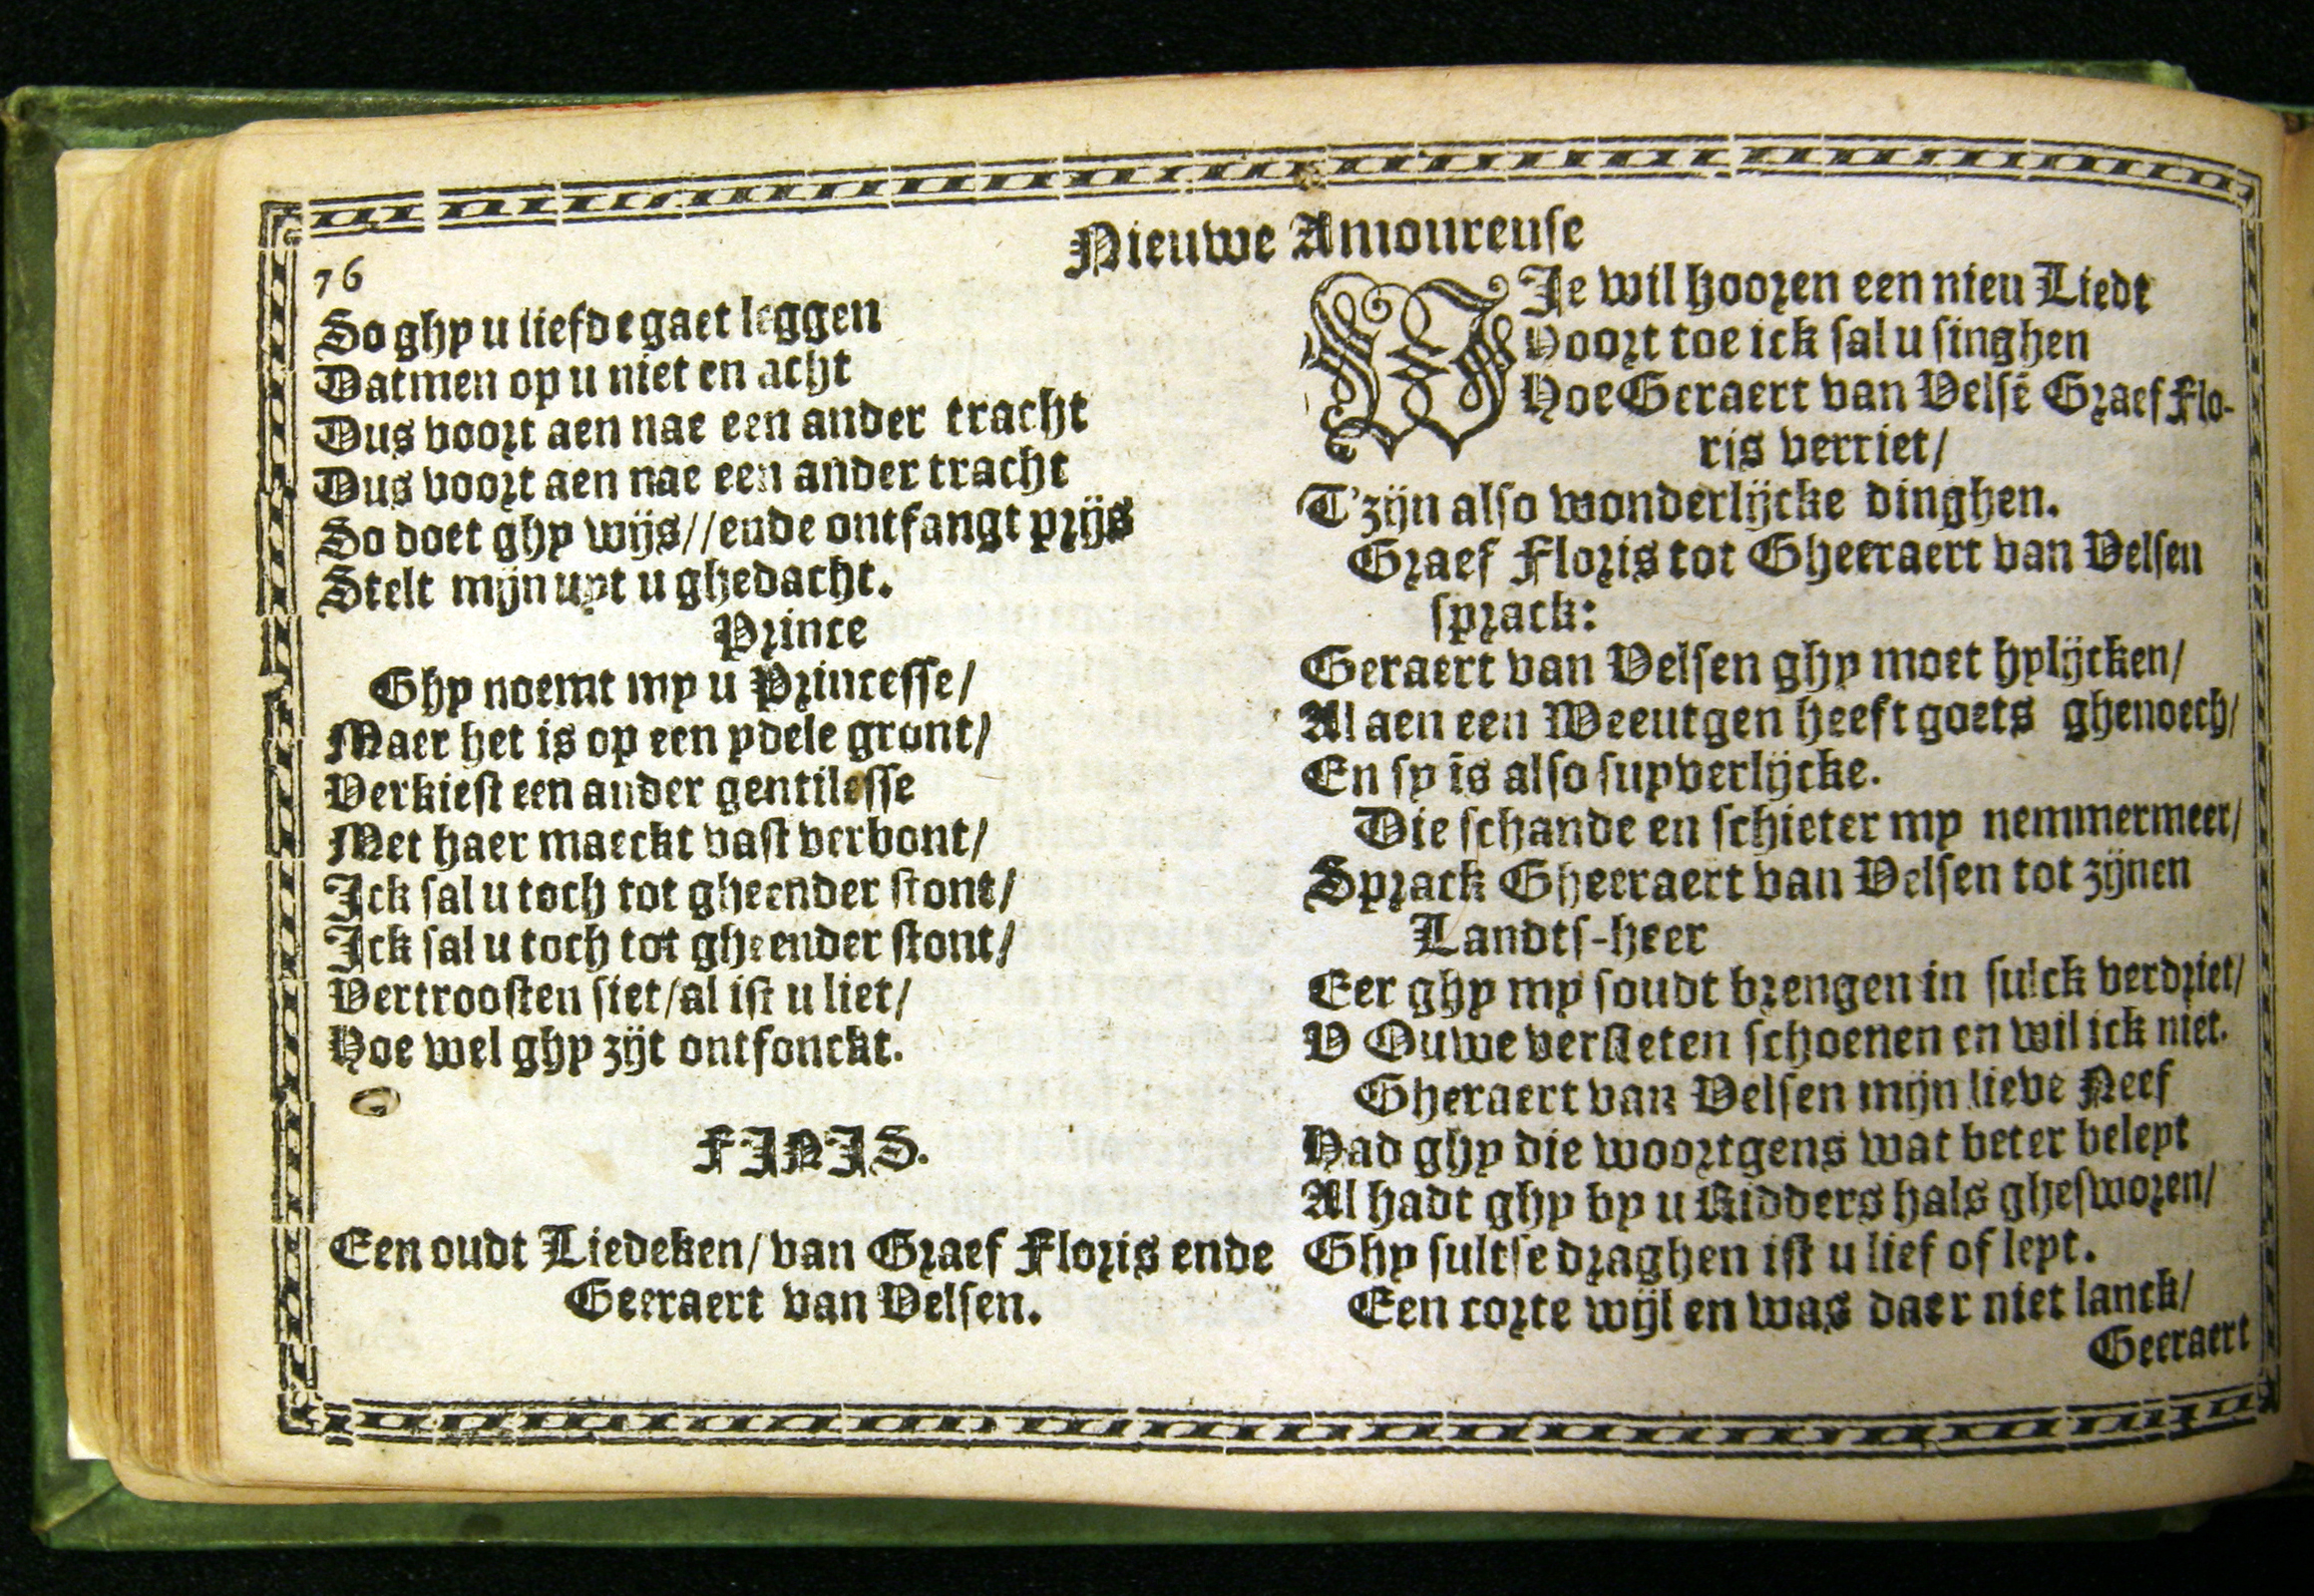 Nieuwe Amoureuse
76
So ghy u liefde gaet leggen
Datmen op u niet en acht
Dus voort aen nae een ander tracht
Dus voort aen nae een ander tracht
So doet ghy wijs//ende ontfangt prijs
Stelt mijn uyt u ghedacht.
Prince
Ghy noemt my u Princesse/
Maer het is op een ydele gront/
Verkiest een ander gentilesse
Met haer maeckt vast verbont/
Ick sal u toch tot gheender stont/
Ick sal u toch tot gheender stont/
Vertroosten siet/al ist u liet/
Hoe wel ghy zijt ontfonckt.
FINIS.
Een oudt Liedeken/van Graef Floris ende
Geeraert van Velsen.
WIe wil hooren een nieu Liedt
Hoort toe ick sal u singhen
Hoe Geraert van Velsẽ Graef Flo-
ris verriet/
T'zijn also wonderlijcke dinghen.
Graef Floris tot Gheeraert van Velsen
sprack:
Geraert van Velsen ghy moet hylijcken/
Al aen een Weeutgen heeft goets ghenoech/
En sy is also suyverlijcke.
Die schande en schieter my nemmermeer/
Sprack Gheeraert van Velsen tot zijnen
Landts-heer
Eer ghy my soudt brengen in sulck verdriet/
V Ouwe versleten schoenen en wil ick niet.
Gheraert van Velsen mijn lieve Neef
Had ghy die woortgens wat beter beleyt
Al hadt ghy by u Ridders hals ghesworen/
Ghy sultse draghen ist u lief of leyt.
Een corte wijl en was daer niet lanck/
Geeraert